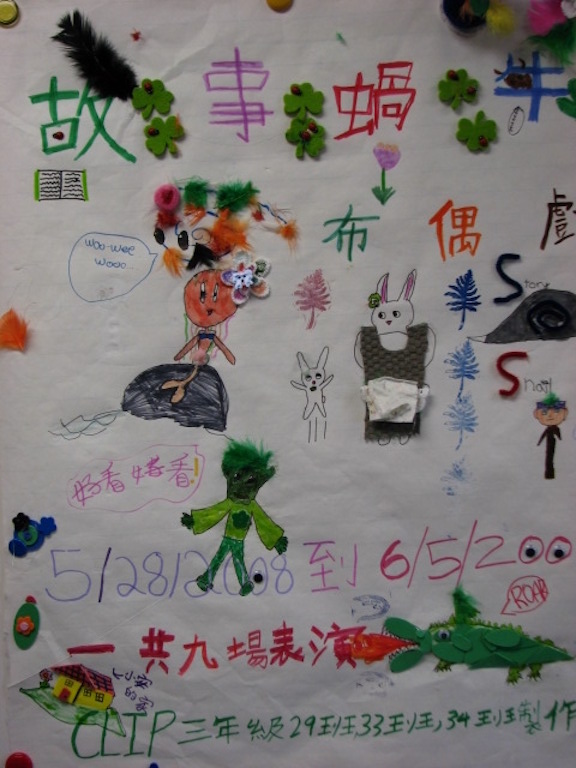 故事蝸牛
布偶
Woo-wee
wooo
Story
Snail
好看好看!
5/28/2008到6/5/200
ROAR
一共九場表演
CLIP三年級29班,33班,34班製作